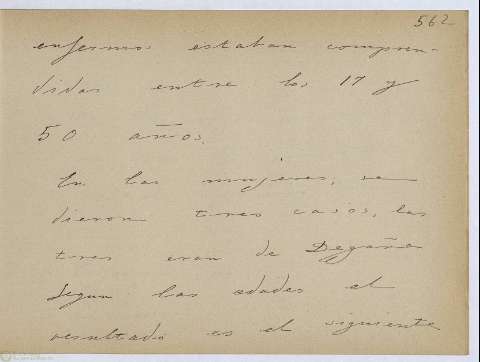 562
enfermos estaban compren-
didas entre los 17 y
50 años.
En las mujeres, se
dieron tres casos, las
tres eran de Degaña
Segun las edades el
resultado es el siguiente